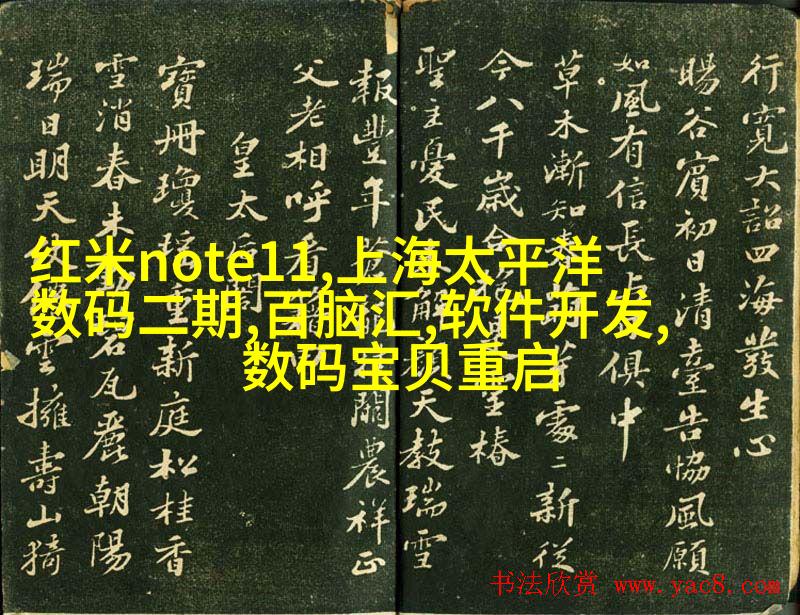 行寬大詔四海發生心
暘谷賓初日清臺告協風願
如風有信長日俱中
草木漸知春芽處〻新從
今八千歲合抱是靈椿
聖主憂民解顏天教瑞雪
報豐年闕農祥正
父老相呼看
皇太后閤
寶冊瓊瑤重新庭松桂香
雪消春未碧瓦麗朝陽
瑞日明天仗仙雲擁壽山猗
红米note11,上海太平洋
数码二期,百脑汇,软件开发,
数码宝贝重启
书法欣赏 www.yac8.com